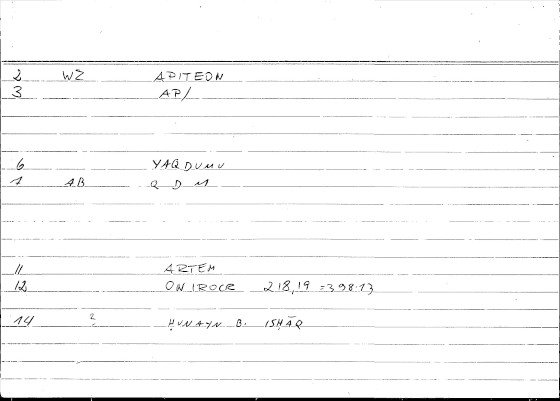 2 WZ APITEON
3 AP/
6 YAQDUMU
1 AB Q D M
11 ARTEM
12 ONIROCR 218,19 = 398.13
14 ? ḤUNAYN B. ISḤĀQ